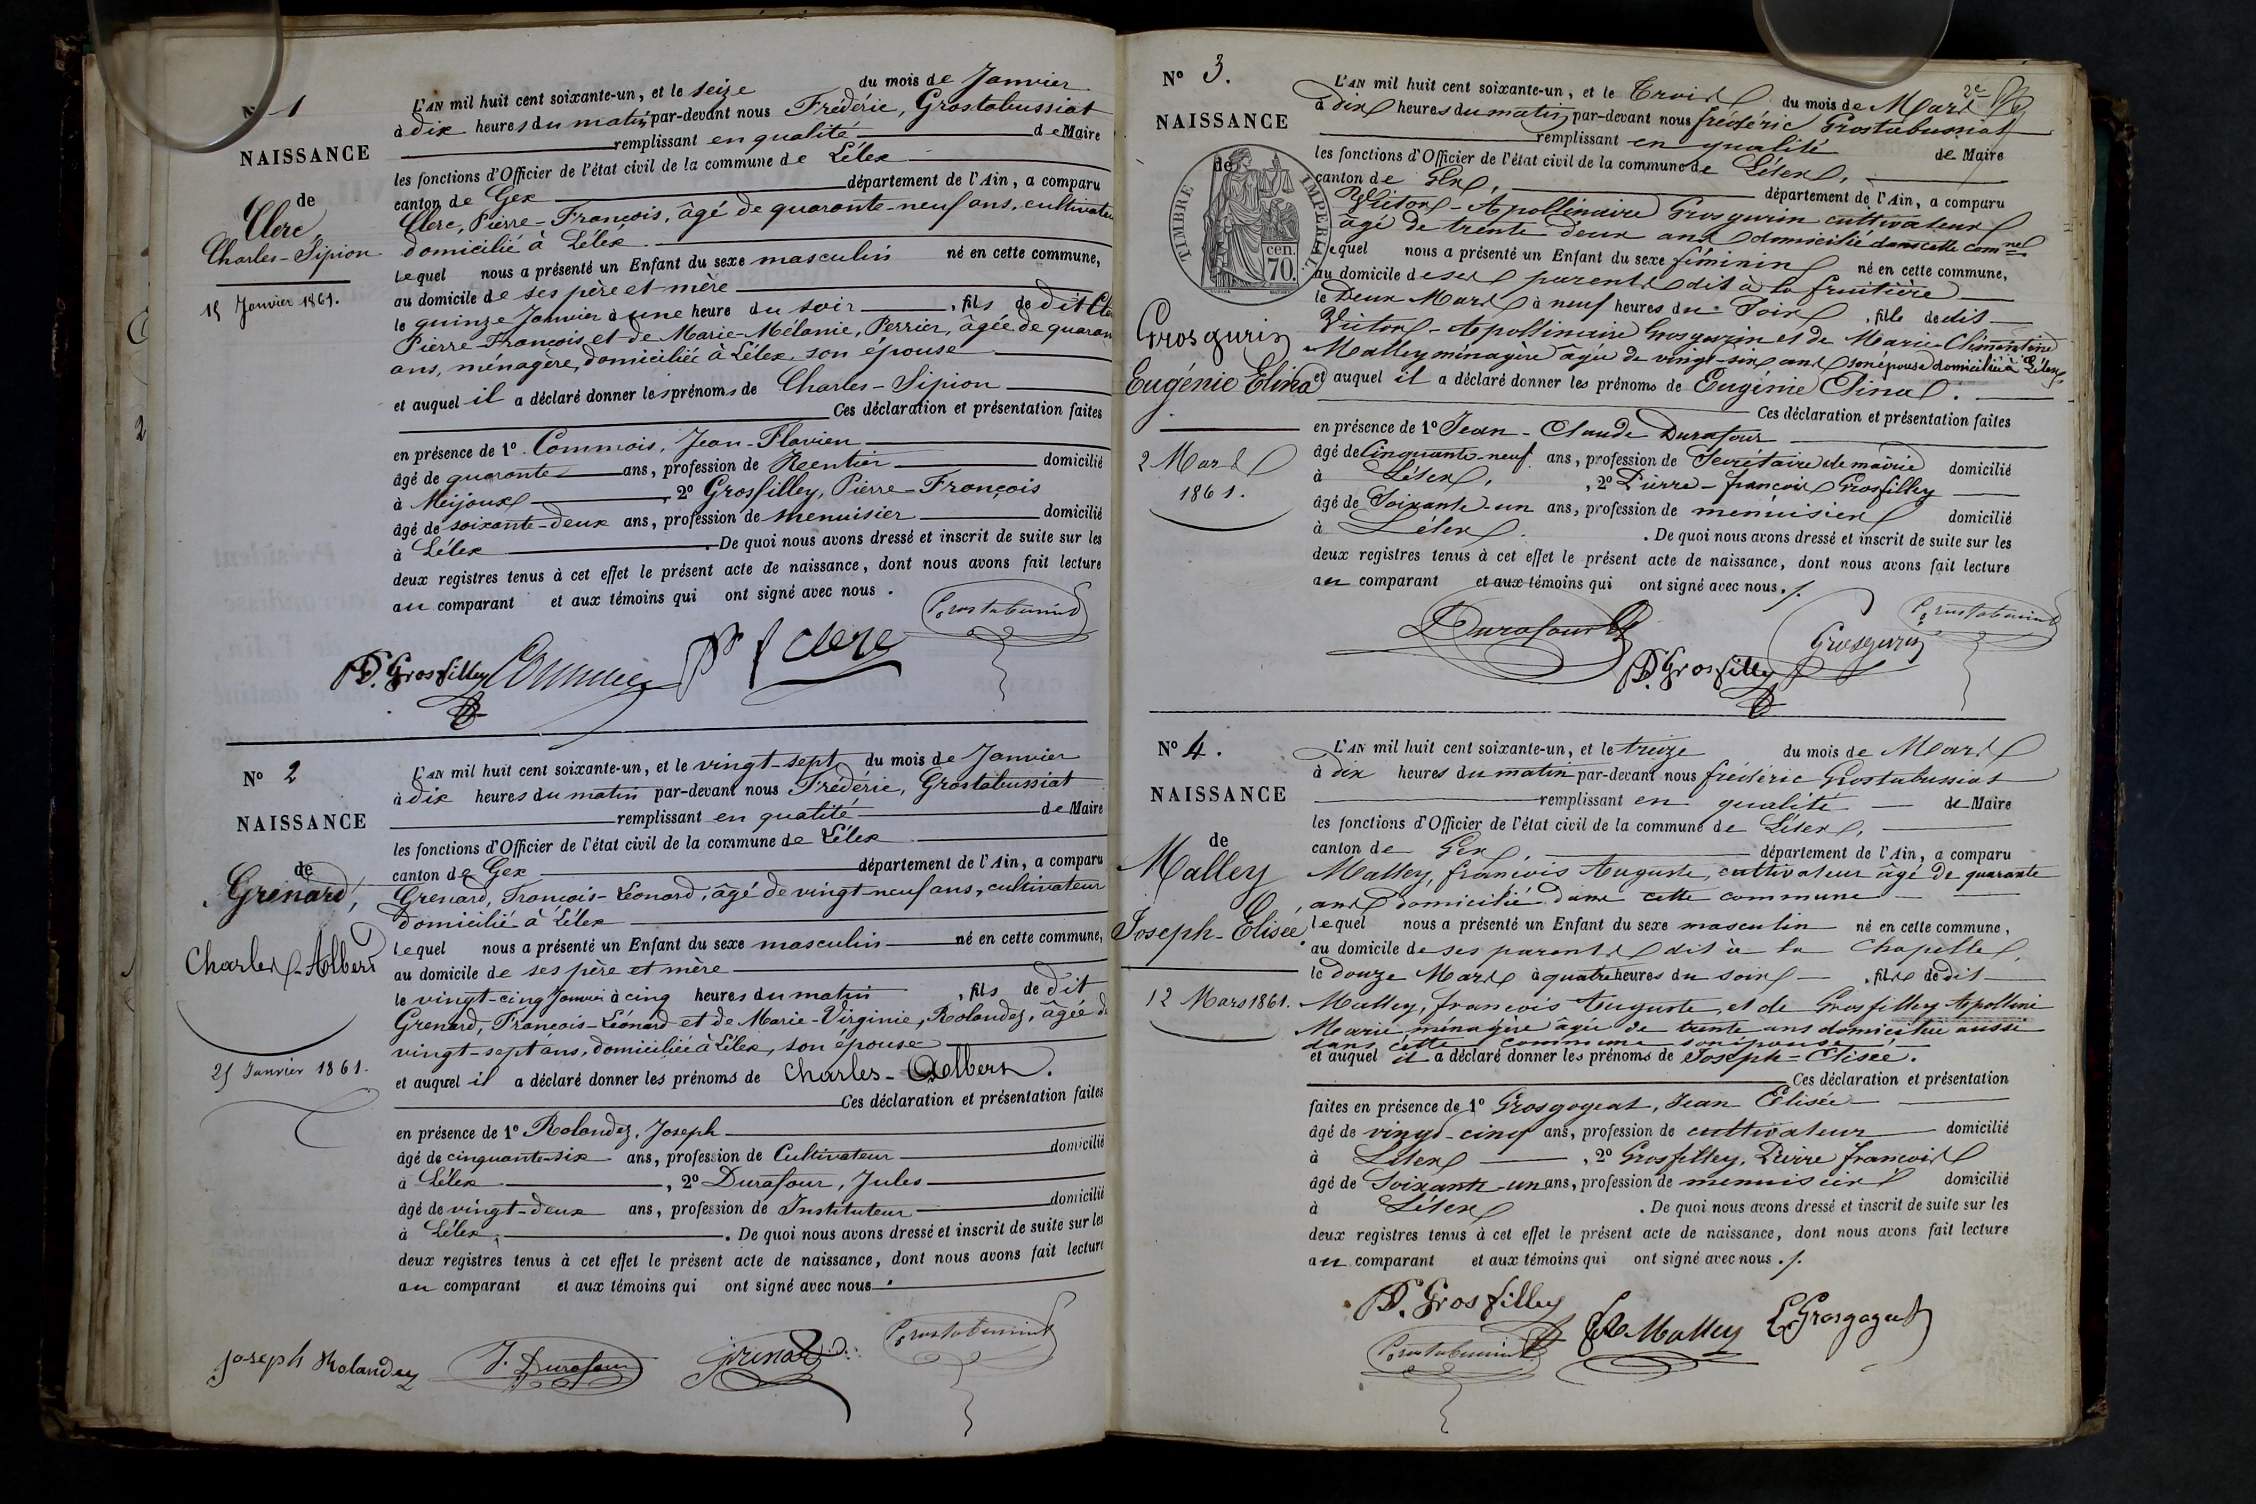 N° 1
NAISSANCE
de
Clerc
Charles-Sipion
15 Janvier 1861.
L'AN mil huit cent soixante-un, et le seize du mois de Janvier
à dix heures du matin par-devant nous Frédéric, Grostabussiat
remplissant en qualité de Maire
les fonctions d'Officier de l'état civil de la commune de Lélex
canton de Gex département de l'Ain, a comparu
Clerc, Pierre-François, âgé de quarante-neuf ans, cultivateur
domicilié à Lélex
Lequel nous a présenté un Enfant du sexe masculin né en cette commune,
au domicile de ses père et mère
le quinze Janvier à une heure du soir, fils de dit Clerc
Pierre-François et de Marie-Mélanie, Perrier, âgée de quarante
ans, ménagère, domiciliée à Lélex, son épouse
et auquel il a déclaré donner les prénoms de Charles-Sipion
Ces déclaration et présentation faites
en présence de 1° Commois, Jean-Flavien
âgé de quarante ans, profession de Reentier domicilié
à Meijoux, 2° Grosfilley, Pierre-François
âgé de soixante-deux ans, profession de menuisier domicilié
à Lélex. De quoi nous avons dressé et inscrit de suite sur les
deux registres tenus à cet effet le présent acte de naissance, dont nous avons fait lecture
au comparant et aux témoins qui ont signé avec nous.
Grostabussiat
P. Grosfilley Pre f clerc
N° 2
NAISSANCE
de
Grenard,
Charles-Albert
25 Janvier 1861.
L'AN mil huit cent soixante-un, et le vingt-sept du mois de Janvier
à dix heures du matin par-devant nous Frédéric, Grostabussiat
remplissant en qualité de Maire
les fonctions d'Officier de l'état civil de la commune de Lélex
canton de Gex département de l'Ain, a comparu
Grenard, François-Léonard, âgé de vingt-neuf ans, cultivateur
domicilié à Lélex
Lequel nous a présenté un Enfant du sexe masculin né en cette commune,
au domicile de ses père et mère
le vingt-cinq Janvier à cinq heures du matin, fils de dit
Grenard, François-Léonard et de Marie-Virginie, Rolandez, âgée de
vingt-sept ans, domiciliée à Lélex, son épouse
et auquel il a déclaré donner les prénoms de Charles-Albert.
Ces déclaration et présentation faites
en présence de 1° Rolandez, Joseph
âgé de cinquante-six ans, profession de Cultivateur domicilié
à Lélex, 2° Durafour, Jules
âgé de vingt-deux ans, profession de Instituteur domicilié
à Lélex. De quoi nous avons dressé et inscrit de suite sur les
deux registres tenus à cet effet le présent acte de naissance, dont nous avons fait lecture
au comparant et aux témoins qui ont signé avec nous.
Joseph Rolandez J. Durafour Grenard Grostabussiat
2e
N° 3.
NAISSANCE
de
TIMBRE IMPERIAL
cen.
70.
Grosgurin
Eugénie Elina
2 Mars
1861.
L'AN mil huit cent soixante-un, et le Trois du mois de Mars
à dix heures du matin par-devant nous frédéric Grostabussiat
remplissant en qualité de Maire
les fonctions d'Officier de l'état civil de la commune de Lélex,
canton de Gex, département de l'Ain, a comparu
Victor-Apollinaire Grosgurin cultivateur
âgé de trente deux ans domicilié dans cette comne
Lequel nous a présenté un Enfant du sexe féminin né en cette commune,
au domicile de ses parents dit à la fruitière
le Deux Mars à neuf heures du Soir, fille de dit
Victor-Apollinaire Grosgurin et de Marie Clémentine
Malley ménagère âgée de vingt-six ans son épouse domiciliée à Lélex
et auquel il a déclaré donner les prénoms de Eugénie Elina.
Ces déclaration et présentation faites
en présence de 1° Jean-Claude Durafour
âgé de Cinquante-neuf ans, profession de Secrétaire de mairie domicilié
à Lélex, 2° Pierre-francois Grosfilley
âgé de Soixante-un ans, profession de menuisier domicilié
à Lélex. De quoi nous avons dressé et inscrit de suite sur les
deux registres tenus à cet effet le présent acte de naissance, dont nous avons fait lecture
au comparant et aux témoins qui ont signé avec nous./.
Durafour Grosgurin Grostabussiat
P. Grosfilley
N° 4.
NAISSANCE
de
Malley
Joseph-Elisée
12 Mars 1861.
L'AN mil huit cent soixante-un, et le treize du mois de Mars
à dix heures du matin par-devant nous frédéric Grostabussiat
remplissant en qualité de Maire
les fonctions d'Officier de l'état civil de la commune de Lélex,
canton de Gex, département de l'Ain, a comparu
Malley, francois Auguste, cultivateur âgé de quarante
ans domicilié dans cette commune
Lequel nous a présenté un Enfant du sexe masculin né en cette commune,
au domicile de ses parents dit à la Chapelle,
le douze Mars à quatre heures du soir, fils de dit
Malley, francois Auguste, et de Grosfilley Apollinie
Marie ménagère âgée de trente ans domiciliée aussi
dans cette commune son épouse,
et auquel il a déclaré donner les prénoms de Joseph-Elisée.
Ces déclaration et présentation
faites en présence de 1° Grosgogeat, Jean Elisée
âgé de vingt-cinq ans, profession de cultivateur domicilié
à Lélex, 2° Grosfilley, Pierre francois
âgé de Soixante-un ans, profession de menuisier domicilié
à Lélex. De quoi nous avons dressé et inscrit de suite sur les
deux registres tenus à cet effet le présent acte de naissance, dont nous avons fait lecture
au comparant et aux témoins qui ont signé avec nous./.
P. Grosfilley Malley Grosgogeat
Grostabussiat